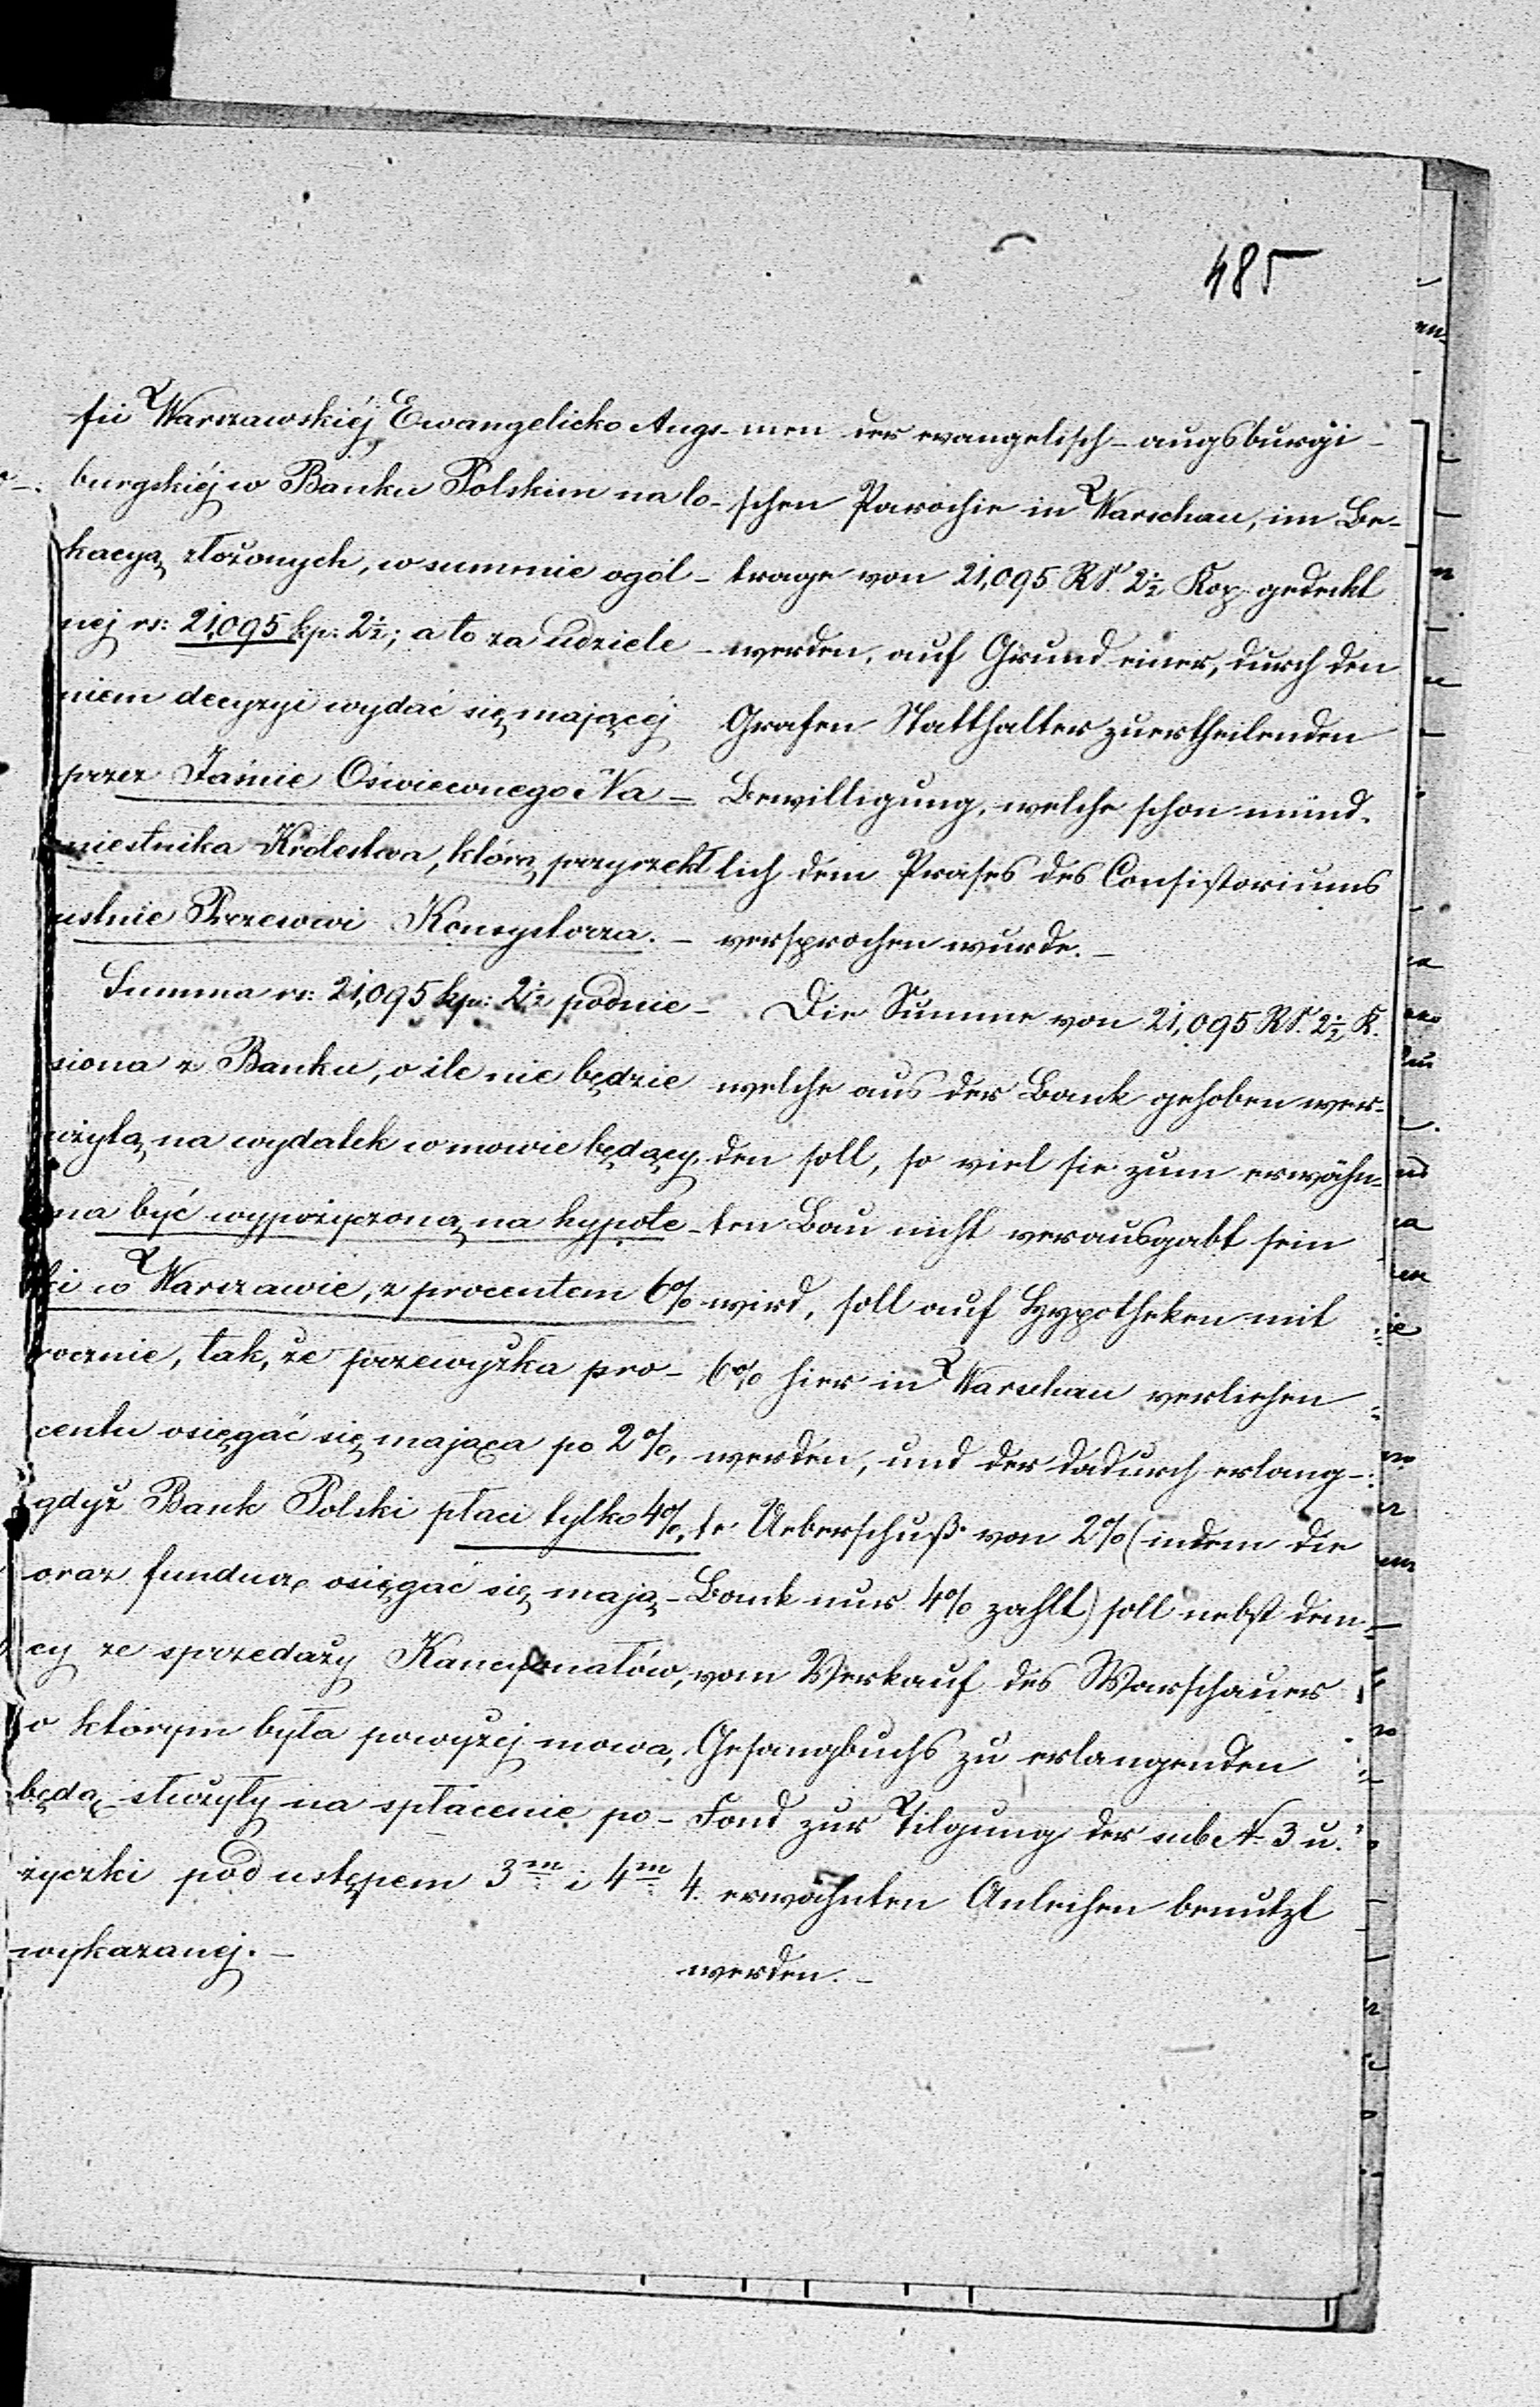 485
fii Warszawskiéj Ewangelicko Augs-
burgskiéj w Banku Polskim na lo-
kacyą złożonych, w summie ogól-
nej rs: 21,095 kp: 2½; a to za udziele-
niem decyzyi wydać się mającéj
przez Jaśnie Oświeconego Na-
miestnika Królestwa, którą przyrzekł
ustnie Prezesowi Konsystorza. -
Summa rs: 21,095 kp: 2½ podnie-
siona z Banku, o ile nie będzie
użytą na wydatek w mowie będący,
ma być wypożyczoną na hypote-
ki w Warszawie, z procentem 6%
rocznie, tak, że przewyżka pro-
centu osięgać się mająca po 2%,
gdyż Bank Polski płaci tylko 4%,
oraz fundusz osięgać się mają-
cy ze sprzedaży Kancyonałów,
o którym była powyżej mowa,
będą służyły na spłacenie po-
życzki pod ustępem 3m i 4m
wykazanej. -
men der evangelisch-augsburgi-
schen Parochie in Warschau, im Be-
trage von 21,095 RS. 2½ Kop. gedeckt
werden, auf Grund einer, durch den
Grafen Statthalter zuertheilenden
Bewilligung, welche schon münd-
lich dem Präses des Consistoriums
versprochen wurde. -
Die Summe von 21,095 RS. 2½ K.
welche aus der Bank gehoben wer-
den soll, so viel sie zum erwähn-
ten Bau nicht verausgabt sein
wird, soll auf Hypotheken mit
6% hier in Warschau verliehen
werden, und der dadurch erlang-
te Ueberschuß von 2% (indem die
Bank nur 4% zahlt) soll nebst dem
vom Verkauf des Warschauer
Gesangbuchs zu erlangenden
Fond zur Tilgung der sub N 3 u.
4. erwähnten Anleihen benutzt
werden. -